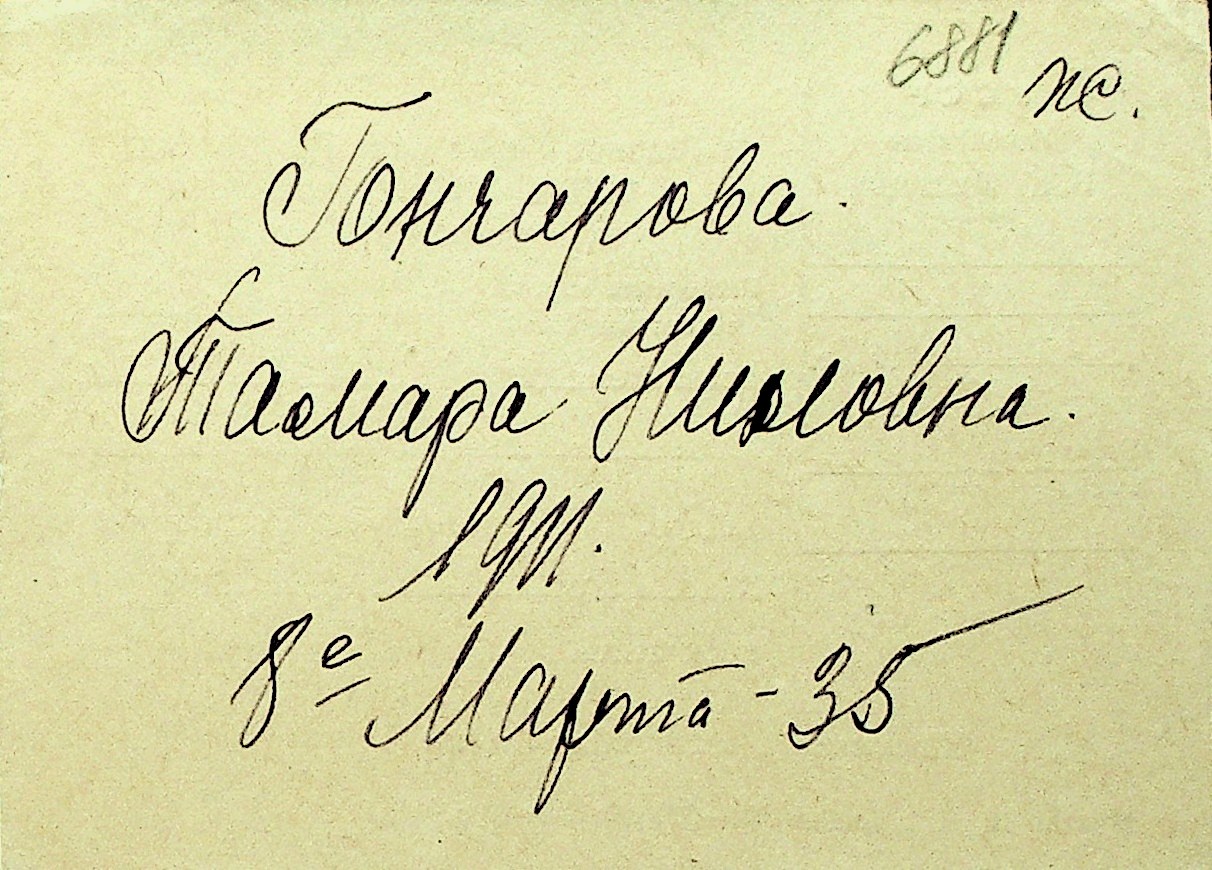 6881
Гончарова.
Тамара Ниловна.
1911.
8е Марта - 35